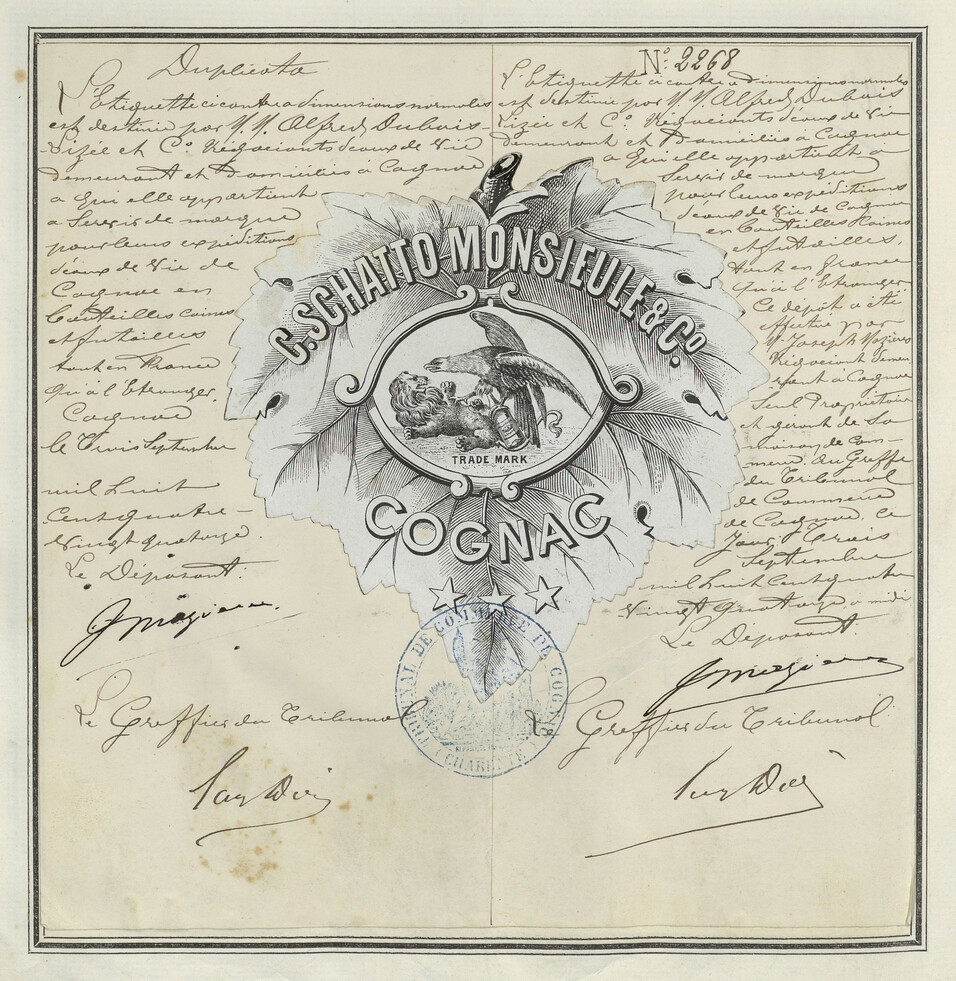 Duplicata
L'Etiquette ci contre a dimensions normales
est destinée par M. M. Alfred Dubois
Lizée et Co. Négociants d'eaux de Vie
demeurant et Domiciliés à Cognac
a qui elle appartient
a Servir de marque
pour leurs expéditions
d'eaux de Vie de
Cognac en
bouteilles caisses
et futailles
tant en France
qu'à l'Etranger.
Cognac
le Trois Septembre
mil huit
cent quatre-
vingt quatorze.
Le Déposant.
Le Greffier du Tribunal
No. 2268
L'Etiquette ci contre a dimensions normales
est destinée par M. M. Alfred Dubois
Lizée et Co. Négociants d'eaux de Vie
demeurant et Domiciliés à Cognac
a qui elle appartient a
Servir de marque
pour leurs expéditions
d'eaux de Vie de Cognac
en bouteilles Caisses
et futailles,
tant en france
qu'à l'Etranger
Ce dépôt a été
effectué par
M. Joseph
Négociant demeu
rant à Cognac
Seul Propriétaire
et gérant de Sa
maison de Com-
merce. au Greffe
du Tribunal
de Commerce
de Cognac, ce
Jour Trois
Septembre
mil huit cent quatre
Vingt Quatorze, a midi
Le Déposant.
Le Greffier du Tribunal
C. SCHATTO MONSIEULE & Co.
TRADE MARK
COGNAC
TRIBUNAL DE COMMERCE DE COGNAC
(CHARENTE)